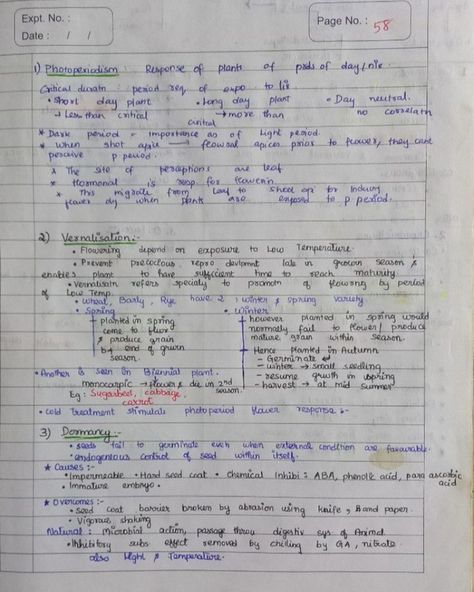 Expt. No. :
Date : / /
Page No. : 58
1) Photoperiodism : Response of plants of prds of day/nit
Critical duratn : period req. of expo to lit
• Short day plant • Long day plant • Day neutral.
→ Less than critical → more than no correlatn
critical
* Dark period = importance as of light period.
* when shot apex → flowral apices prior to flower, they cant
perceive p period.
* The site of perceptions are leaf
* Hormonal is resp. for flowerin
* This migrate from leaf to shoot apx for Inducing
flower only when plants are exposed to p period.
2) Vernalisation :-
• Flowering depend on exposure to Low Temperature.
• Prevent precocious repro devlopmnt late in growin season &
enables plant to have sufficient time to reach maturity.
• Vernalisatn refers specially to promotn of flowring by period
of Low Temp.
• wheat, Barly, Rye have 2 : winter & spring variety
• Spring • Winter
planted in spring
come to flowr
& produce grain
by end of growin
season.
however planted in spring would
normally fail to flower/ produce
mature grain within season.
Hence planted in Autumn
- Germinate
- winter → small seedling
- resume growth in spring
- harvest → at mid summer
• Another is seen in Biennial plant.
monocarpic → flower & die in 2nd
season.
Eg : Sugarbeet, cabbage,
carrot
• cold treatment stimulats photoperiod flower response :-
3) Dormancy :-
• seeds fail to germinate even when external condition are favourable
• endogenious control of seed within itself.
★ Causes :-
• Impermeable • Hard seed coat • Chemical Inhibi : ABA, phenolic acid, para ascorbic
acid
• Immature embryo.
★ Overcomes :-
• seed coat barrier broken by abrasion using knife, sand paper.
• Vigorous shaking
Natural : microbial action, passage throu digestiv sys of Animal
• Inhibitory subs effect removed by chilling by GA, nitrate.
also light & Temperature.